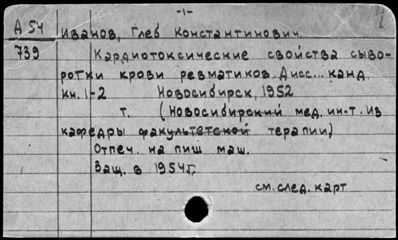 -1-
А 54 Иванов, Глеб Константинович.
739 Кардиотоксические свойства сыво-
ротки крови ревматиков. Дисс... канд.
кн. 1-2 Новосибирск, 1952
т. (Новосибирский мед. ин-т. Из
кафедры факультетской терапии)
Отпеч. на пиш маш.
Защ. в 1954г.
см. след. карт